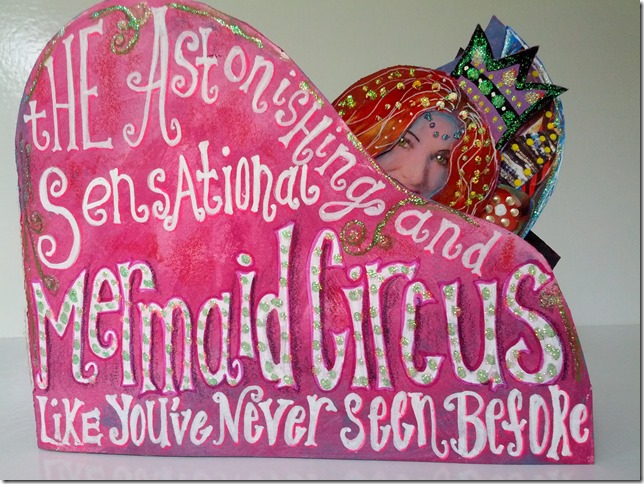 tHE Astonishing and
Sensational
Mermaid Circus
Like You've Never Seen Before